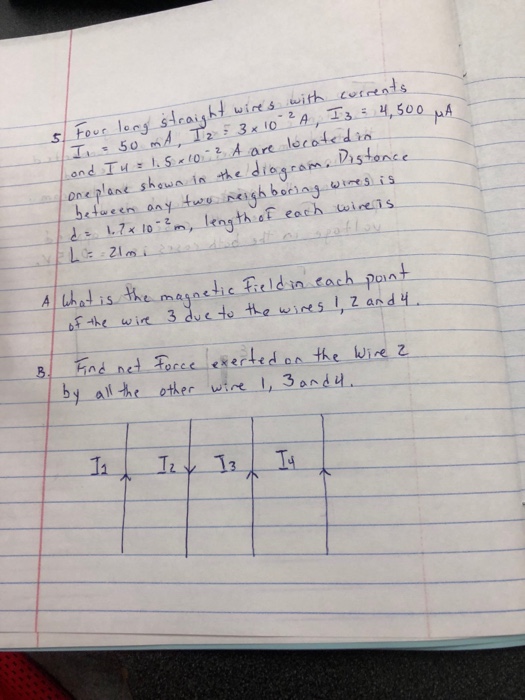 5. Four long straight wires with currents
I₁ = 50 mA, I₂ = 3 x 10⁻² A, I₃ = 4,500 μA
and I4 = 1.5 x 10⁻² A are located in
one plane shown in the diagram. Distance
between any two neighboring wires is
d = 1.7 x 10⁻² m, length of each wire is
L = 21m.
A What is the magnetic field in each point
of the wire 3 due to the wires 1, 2 and 4.
B. Find net force exerted on the wire 2
by all the other wire 1, 3 and 4.
I1 I2 I3 I4